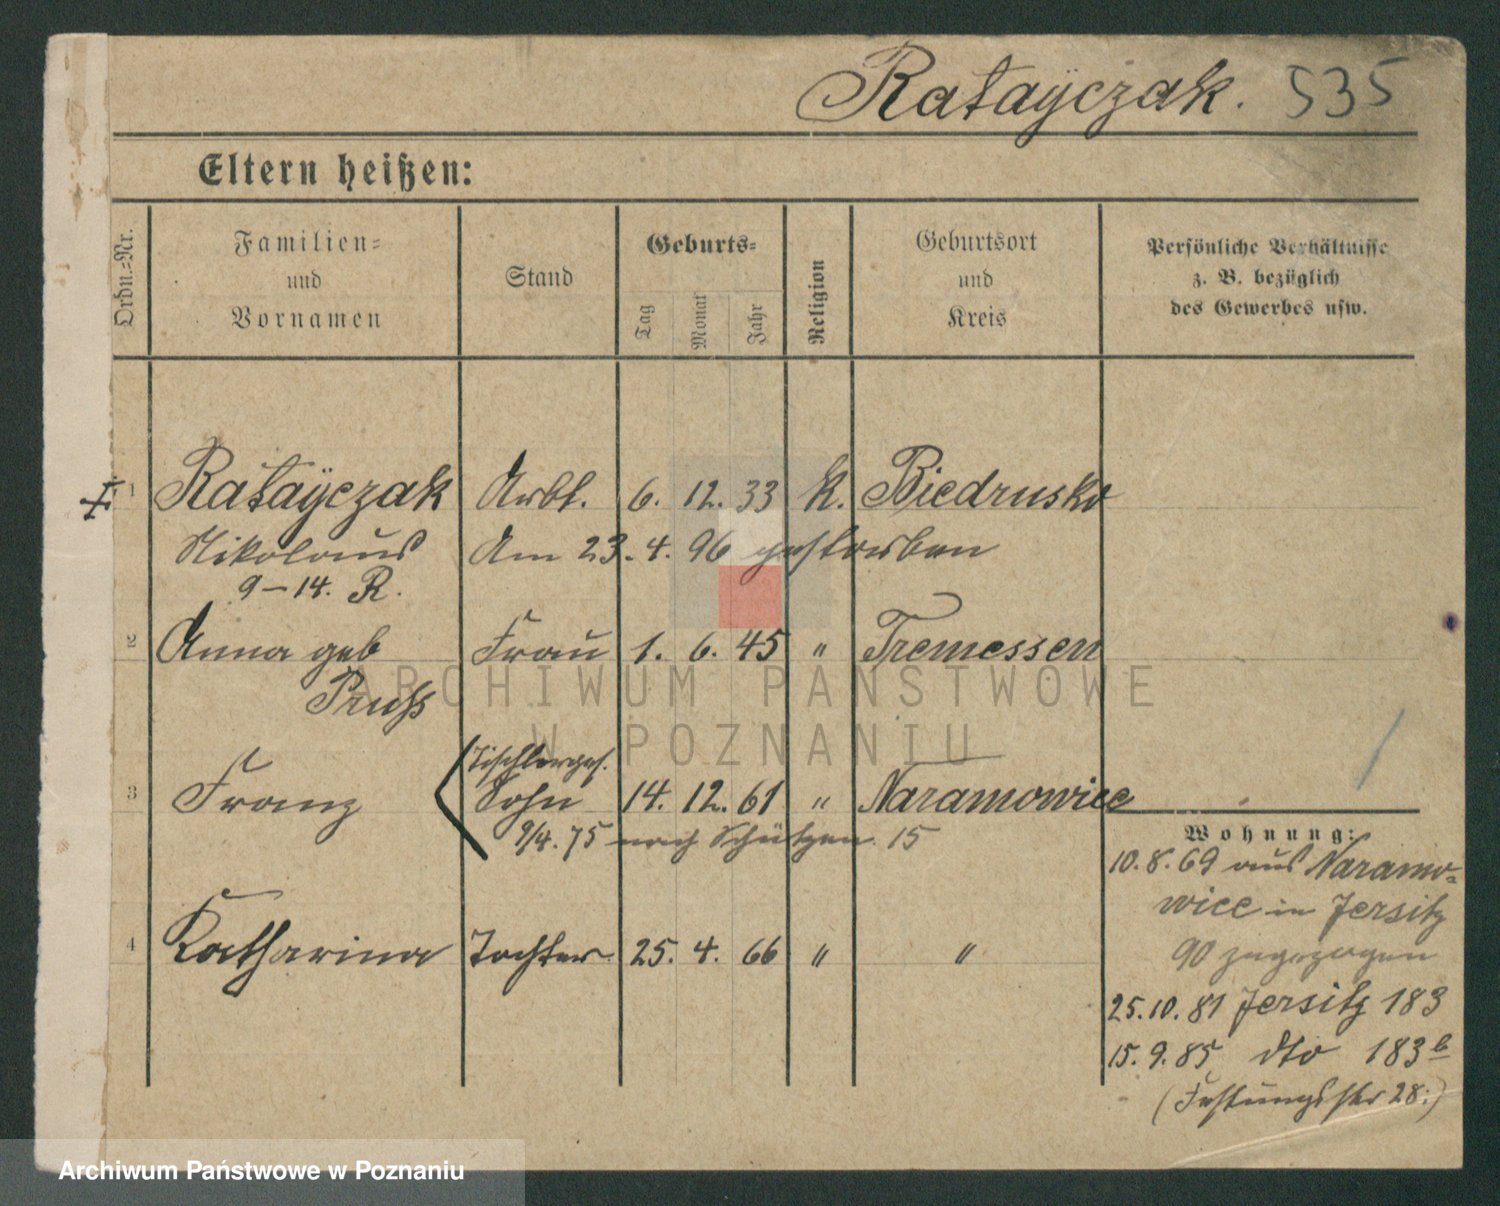 Ratayczak. 535
Eltern heißen:
Ordn.-Nr. Familien- und Vornamen Stand Geburts- Tag Monat Jahr Religion Geburtsort und Kreis Persönliche Verhältnisse z. B. bezüglich des Gewerbes usw.
1 Rataÿczak Arbt. 6. 12. 33 k. Biedrusko
Nikolaus Am 23. 4. 96 gestorben
9–14. R.
2 Anna geb Frau 1. 6. 45 " Tremessen
Pruss
Tischlerges.
3 Franz Sohn 14. 12. 61 " Naramowice
9/4. 75 nach Schützen. 15
4 Katharina Tochter 25. 4. 66 " "
Wohnung:
10. 8. 69 aus Naramo-
wice in Jersitz
90 zugezogen
25. 10. 81 Jersitz 183
15. 9. 85 dto 183 b
(Festungsstr 28.)
ARCHIWUM PAŃSTWOWE
W POZNANIU
Archiwum Państwowe w Poznaniu